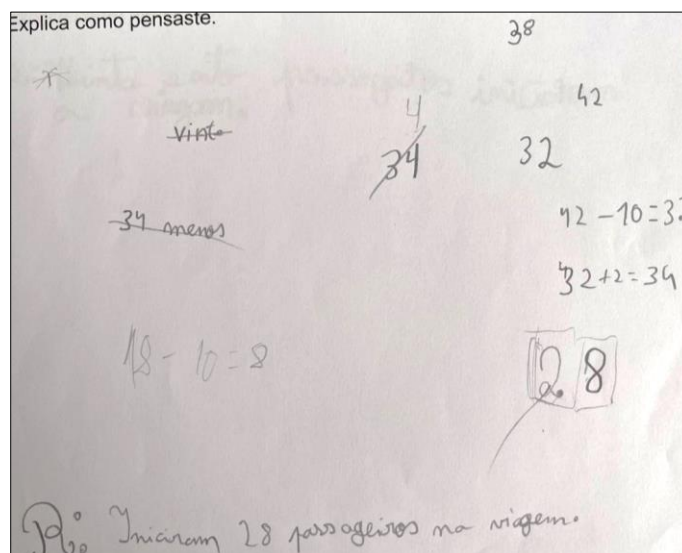 Explica como pensaste.
38
42
4
vinte
34
32
34 menos
42 - 10 = 32
32 + 2 = 34
18 - 10 = 8
28
R: Iniciaram 28 passageiros na viagem.